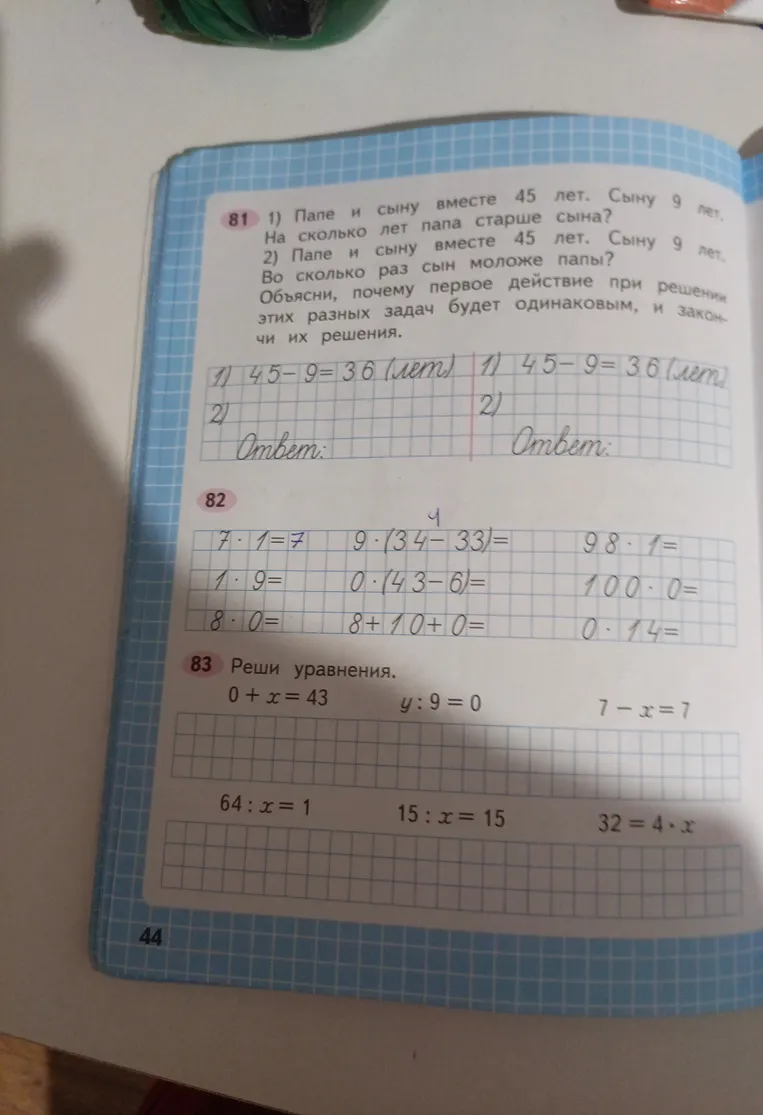 81 1) Папе и сыну вместе 45 лет. Сыну 9 лет.
На сколько лет папа старше сына?
2) Папе и сыну вместе 45 лет. Сыну 9 лет.
Во сколько раз сын моложе папы?
Объясни, почему первое действие при решении
этих разных задач будет одинаковым, и закон-
чи их решения.
1) 45-9=36 (лет) 1) 45-9=36 (лет)
2) 2)
Ответ: Ответ:
82
1
7·1=7 9·(34-33)= 98·1=
1·9= 0·(43-6)= 100·0=
8·0= 8+10+0= 0·14=
83 Реши уравнения.
0 + x = 43 y : 9 = 0 7 − x = 7
64 : x = 1 15 : x = 15 32 = 4 · x
44